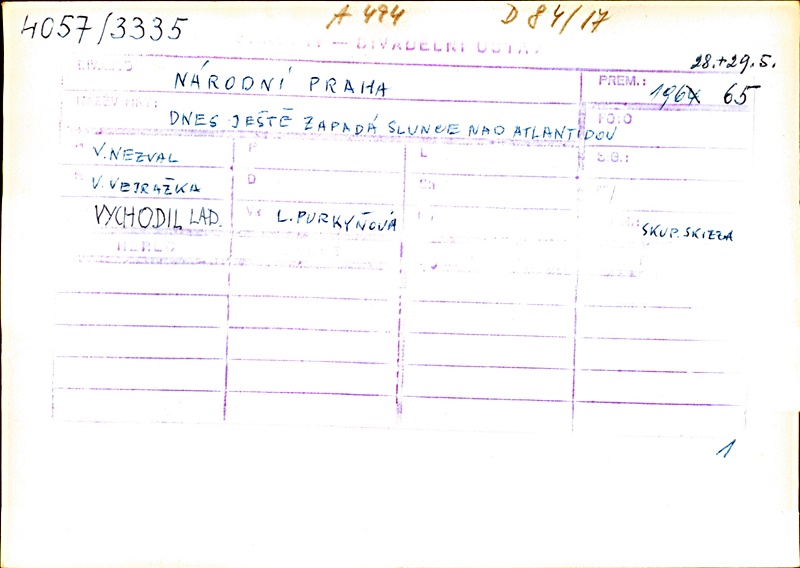 4057/3335
A 494
D 84/17
— DIVADELNÍ ÚSTAV
28.+29.5.
DIVADLO
NÁRODNÍ PRAHA
PREM.:
1964 65
NÁZEV HRY:
DNES JEŠTĚ ZAPADÁ SLUNCE NAD ATLANTIDOU
FOTO
V. NEZVAL
P
L
S.G.:
V. VEJRAŽKA
D
Ch
VYCHODIL LAD.
L. PURKYŇOVÁ
SKUP. SKICZA
HEREC
1